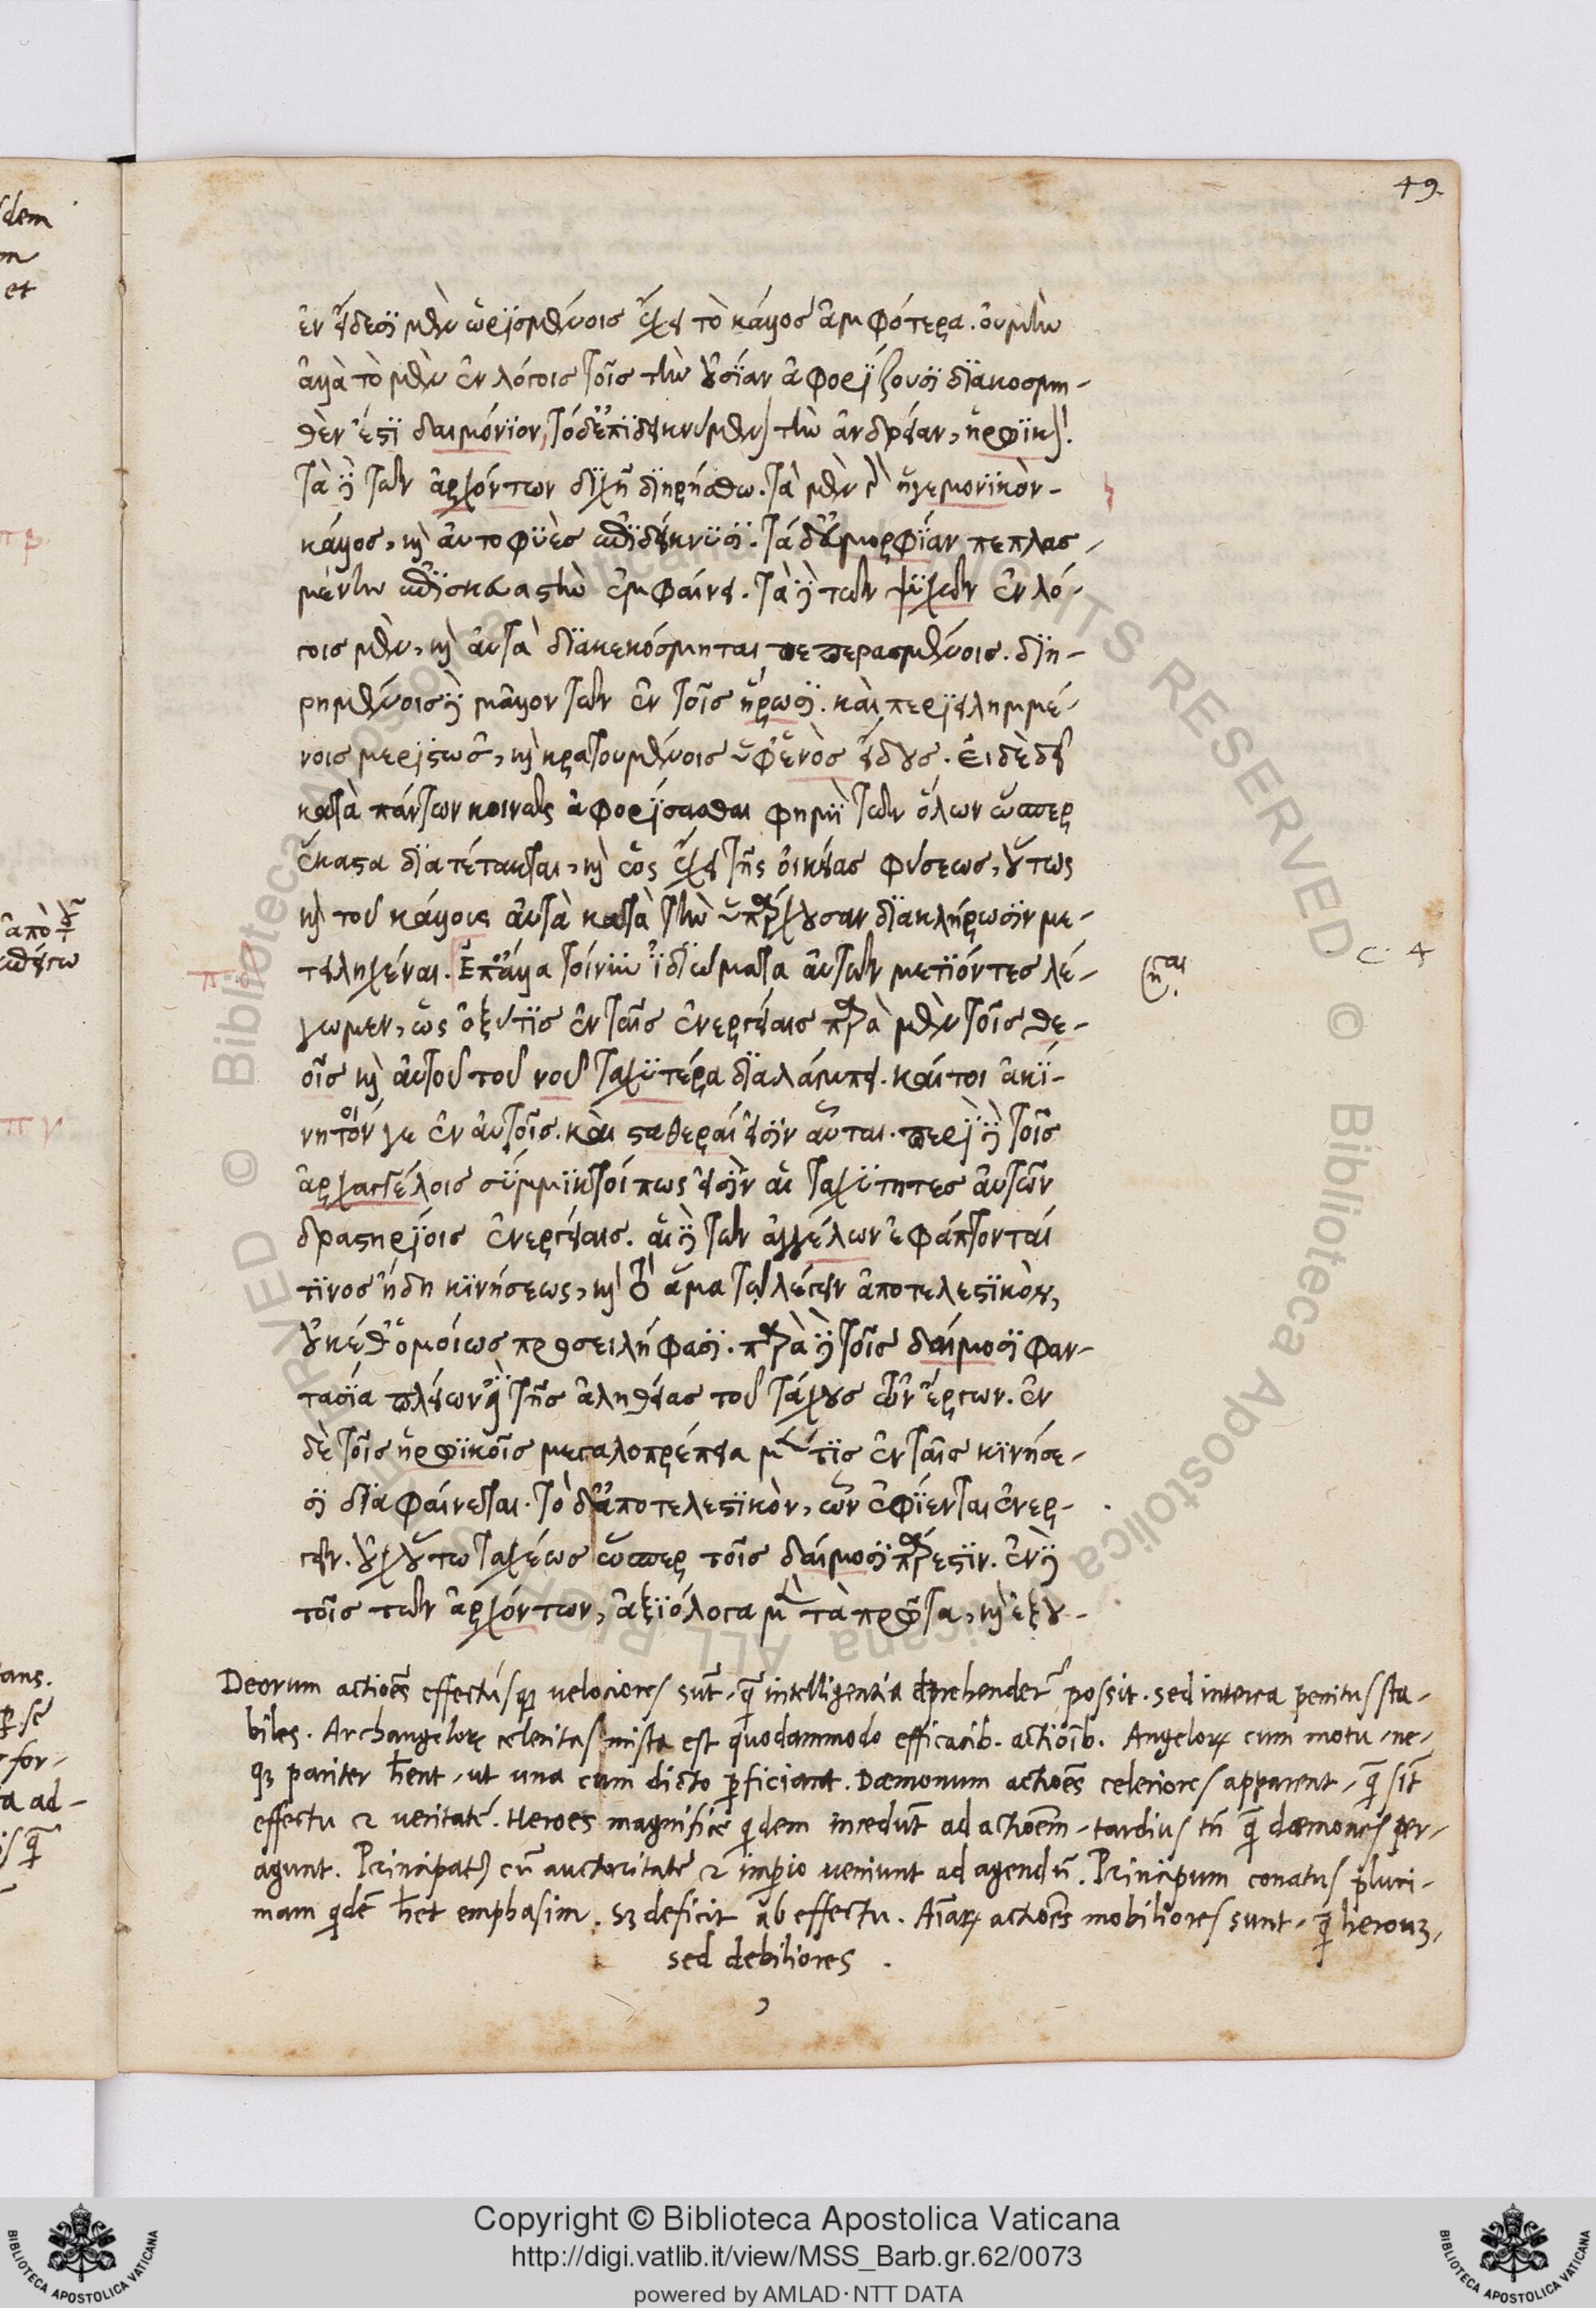 49.
dem
m
et
ἐν εἴδεσι μὲν ὡρισμένοις ἔχει τὸ κάλλος ἀμφότερα. οὐ μὴν
ἀλλὰ τὸ μὲν ἐν λόγοις τοῖς τὴν οὐσίαν ἀφορίζουσι διακοσμη-
θὲν ἐστὶ δαιμόνιον, τὸ δ' ἐπιδεικνύμενον τὴν ἀνδρείαν, ἡρωϊκόν.
τὰ δὲ τῶν ἀρχόντων διχῆ διῃρήσθω. τὰ μὲν γὰρ ἡγεμονικὸν
κάλλος, καὶ αὐτοφυὲς ἐπιδείκνυσι. τὰ δ' εὐμορφίαν πεπλασ-
μένην ἐπίσκευαστὴν ἐμφαίνει. τὰ δὲ τῶν ψυχῶν ἐν λό-
γοις μὲν, καὶ αὐτὰ διακεκόσμηται πεπερασμένοις. διῃ-
ρημένοις δὲ μᾶλλον τῶν ἐν τοῖς ἥρωσι. καὶ περιειλημμέ-
νοις μεριστῶς, καὶ κρατουμένοις ὑφ' ἑνὸς εἴδους. εἰ δὲ δεῖ
κατὰ πάντων κοινῶς ἀφορίσασθαι φημὶ τῶν ὅλων ὥσπερ
ἕκαστα διατέτακται, καὶ ὡς ἔχει τῆς οἰκείας φύσεως, οὕτως
καὶ τοῦ κάλλους αὐτὰ κατὰ τὴν ὑπάρχουσαν διακλήρωσιν με-
τειληχέναι. Ἐπ' ἄλλα τοίνυν ἰδιώματα αὐτῶν μετιόντες λέ-
γωμεν, ὡς ὀξύτης ἐν ταῖς ἐνεργείαις παρὰ μὲν τοῖς θε-
οῖς καὶ αὐτοῦ τοῦ νοῦ ταχυτέρα διαλάμπει. καίτοι ἀκί-
νητοί γε ἐν αὐτοῖς. καὶ σταθεραί εἰσιν αὗται. περὶ δὲ τοῖς
ἀρχαγγέλοις σύμμικτοί πως εἰσὶν αἱ ταχύτητες αὐτῶν
δραστηρίοις ἐνεργείαις. αἱ δὲ τῶν ἀγγέλων ἐφάπτονταί
τινος ἤδη κινήσεως, καὶ τὸ ἅμα τῷ λέγειν ἀποτελεστικὸν,
οὐκέθ' ὁμοίως προσειλήφασι. παρὰ δὲ τοῖς δαίμοσι φαν-
τασία πλείων ἐστὶ τῆς ἀληθείας τοῦ τάχους τῶν ἔργων. ἐν
δὲ τοῖς ἡρωϊκοῖς μεγαλοπρέπεια μέν τις ἐν ταῖς κινήσε-
σι διαφαίνεται. τὸ δ' ἀποτελεστικὸν, ὧν ἐφίενται ἐνερ-
γεῖν. οὐχ οὕτω ταχέως ὥσπερ τοῖς δαίμοσι πάρεστιν. ἐν δὲ
τοῖς τῶν ἀρχόντων, ἀξιόλογα μὲν τὰ πρῶτα, καὶ ἐξου-
Deorum actiões effectúsq; velociores sũt, quã intelligentia dẽprehendere possit. sed interea penitus sta-
biles. Archangelorũ celeritas mista est quodammodo efficacib. actiõib. Angelorũ cum motu, ne-
q; pariter hẽnt, ut una cum dicto ꝑficiant. Dæmonum actiões celeriores apparent, quã sĩt
effectu & veritatẽ. Heroes magnificẽ quidem incedũt ad actiõem, tardius tñ quã dæmones per-
agunt. Principatus cũ auctoritatẽ & imperio veniunt ad agendũ. Principum conatus pluri-
mam quidẽ hẽt emphasim. Sz deficit ab effectu. Aĩarũ actiões mobiliores sunt, quã heroum,
sed debiliores.
Copyright © Biblioteca Apostolica Vaticana
http://digi.vatlib.it/view/MSS_Barb.gr.62/0073
powered by AMLAD·NTT DATA